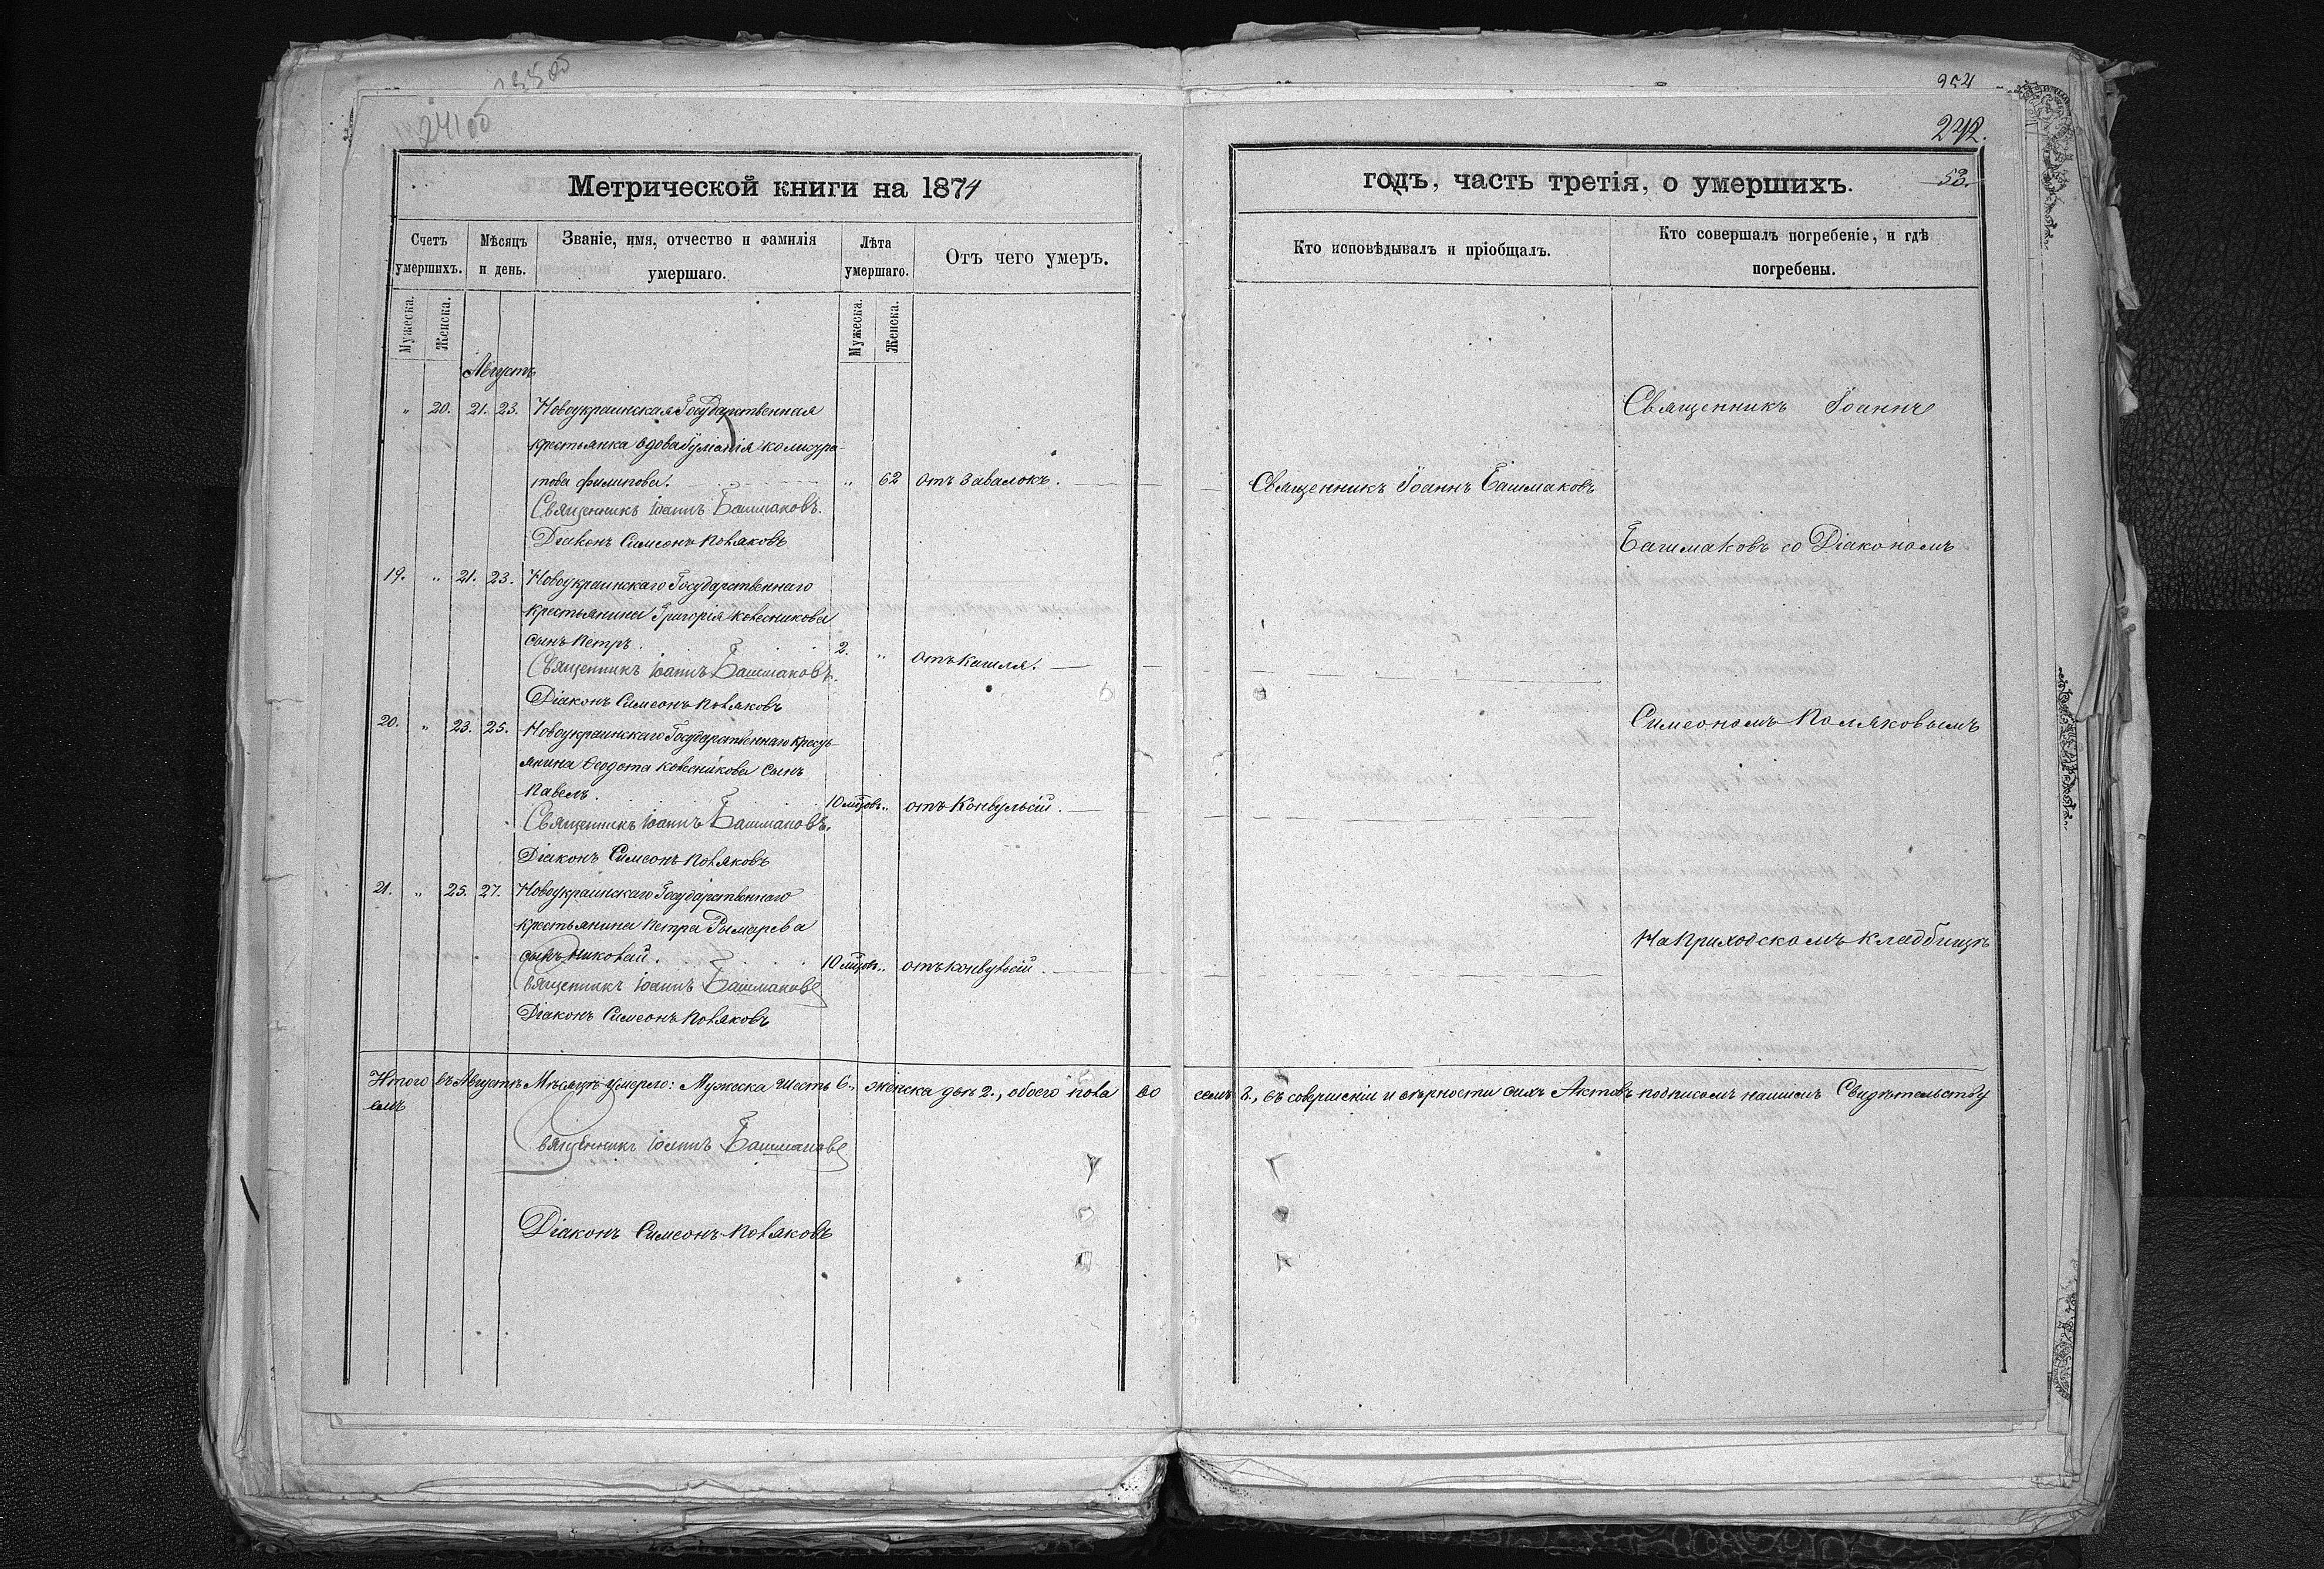 24100
254
242.
53.
Метрической книги на 1874
годъ, часть третія, о умершихъ.
Счетъ умершихъ.
Мѣсяцъ и день.
Званіе, имя, отчество и фамилія умершаго.
Лѣта умершаго.
Отъ чего умеръ.
Кто исповѣдывалъ и пріобщалъ.
Кто совершалъ погребеніе, и гдѣ погребены.
Мужеска.
Женска.
Мужеска.
Женска.
Августъ
„ 20. 21. 23. Новоукраинская Государственная
крестьянка вдова
Филипова. „ 62 отъ завалокъ.
Священникъ Іоаннъ Башмаковъ.
Діаконъ Симеонъ Поляковъ
Священникъ Іоаннъ Башмаковъ
Священникъ Іоаннъ
Башмаковъ со Діакономъ
Симеономъ Поляковымъ
На приходскомъ кладбищѣ
19. „ 21. 23. Новоукраинскаго Государственнаго
крестьянина Григорія Колесникова
сынъ Петръ. 2. „ отъ кашля.
Священникъ Іоаннъ Башмаковъ.
Діаконъ Симеонъ Поляковъ
20. „ 23. 25. Новоукраинскаго Государственнаго кресть-
янина Ѳеодота Колесникова сынъ
Павелъ. 10 мцовъ „ отъ конвульсій.
Священникъ Іоаннъ Башмаковъ.
Діаконъ Симеонъ Поляковъ
21. „ 25. 27. Новоукраинскаго Государственнаго
крестьянина Петра Рымарева
сынъ Николай. 10 мцовъ „ отъ конвульсій.
Священникъ Іоаннъ Башмаковъ
Діаконъ Симеонъ Поляковъ
Итого въ Августѣ Мѣсяцѣ умерло: Мужеска шесть 6., женска двѣ 2., обоего пола во
семъ 8., въ совершеніи и вѣрности сихъ Актовъ подписомъ нашимъ Свидѣтельству
емъ
Священникъ Іоаннъ Башмаковъ
Діаконъ Симеонъ Поляковъ